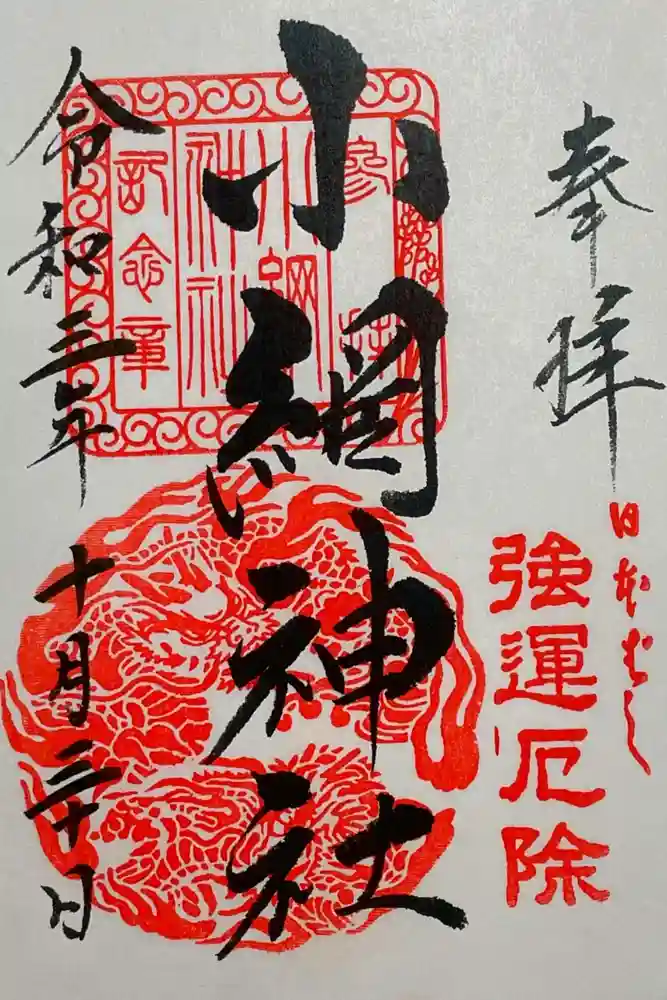 奉拝
日本ばし
強運厄除
小網神社
參拝
小網
神社
記念章
令和三年
十月三十日